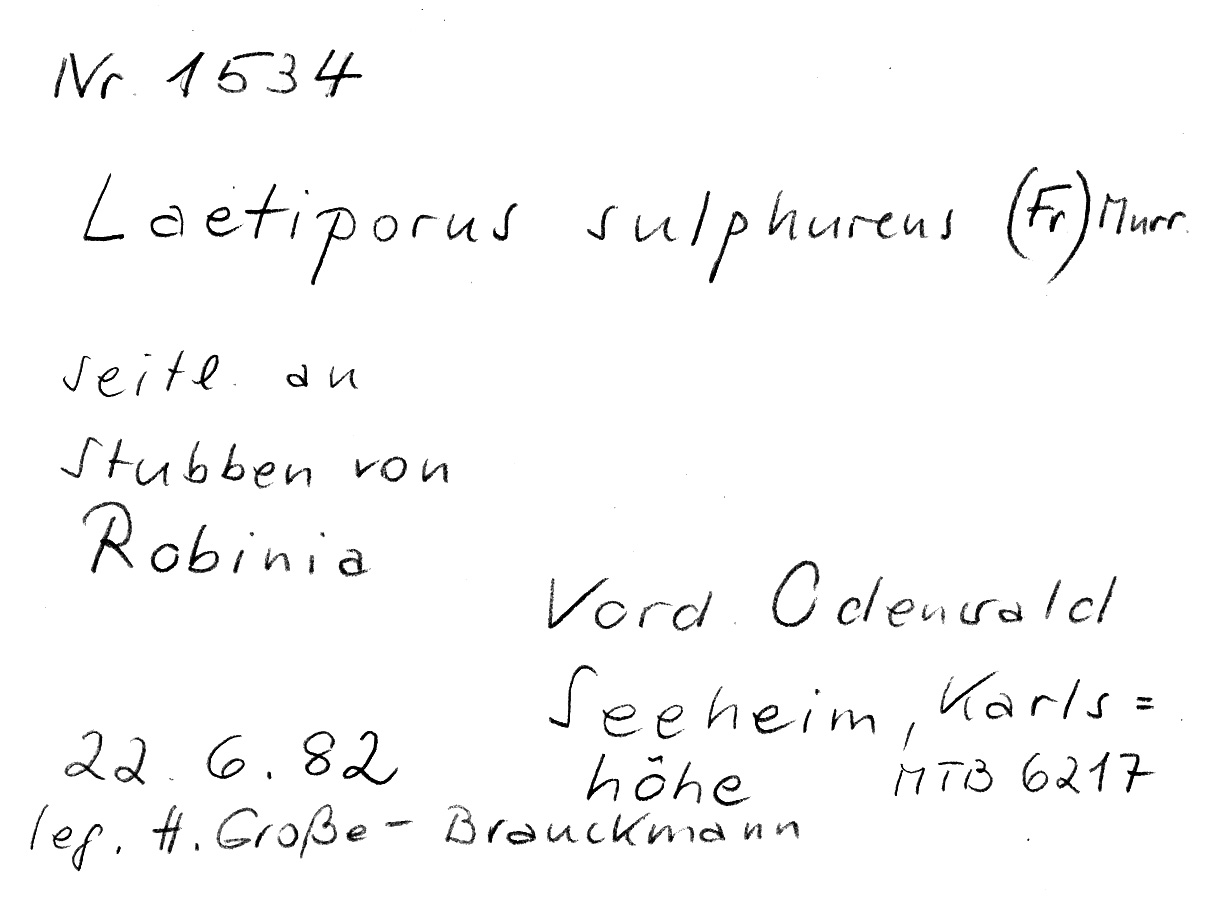 Nr. 1534
Laetiporus sulphureus (Fr) Murr.
seitl. an
Stubben von
Robinia
Vord. Odenwald
Seeheim, Karls=
höhe MTB 6217
22. 6. 82
leg. H. Große-Brauckmann